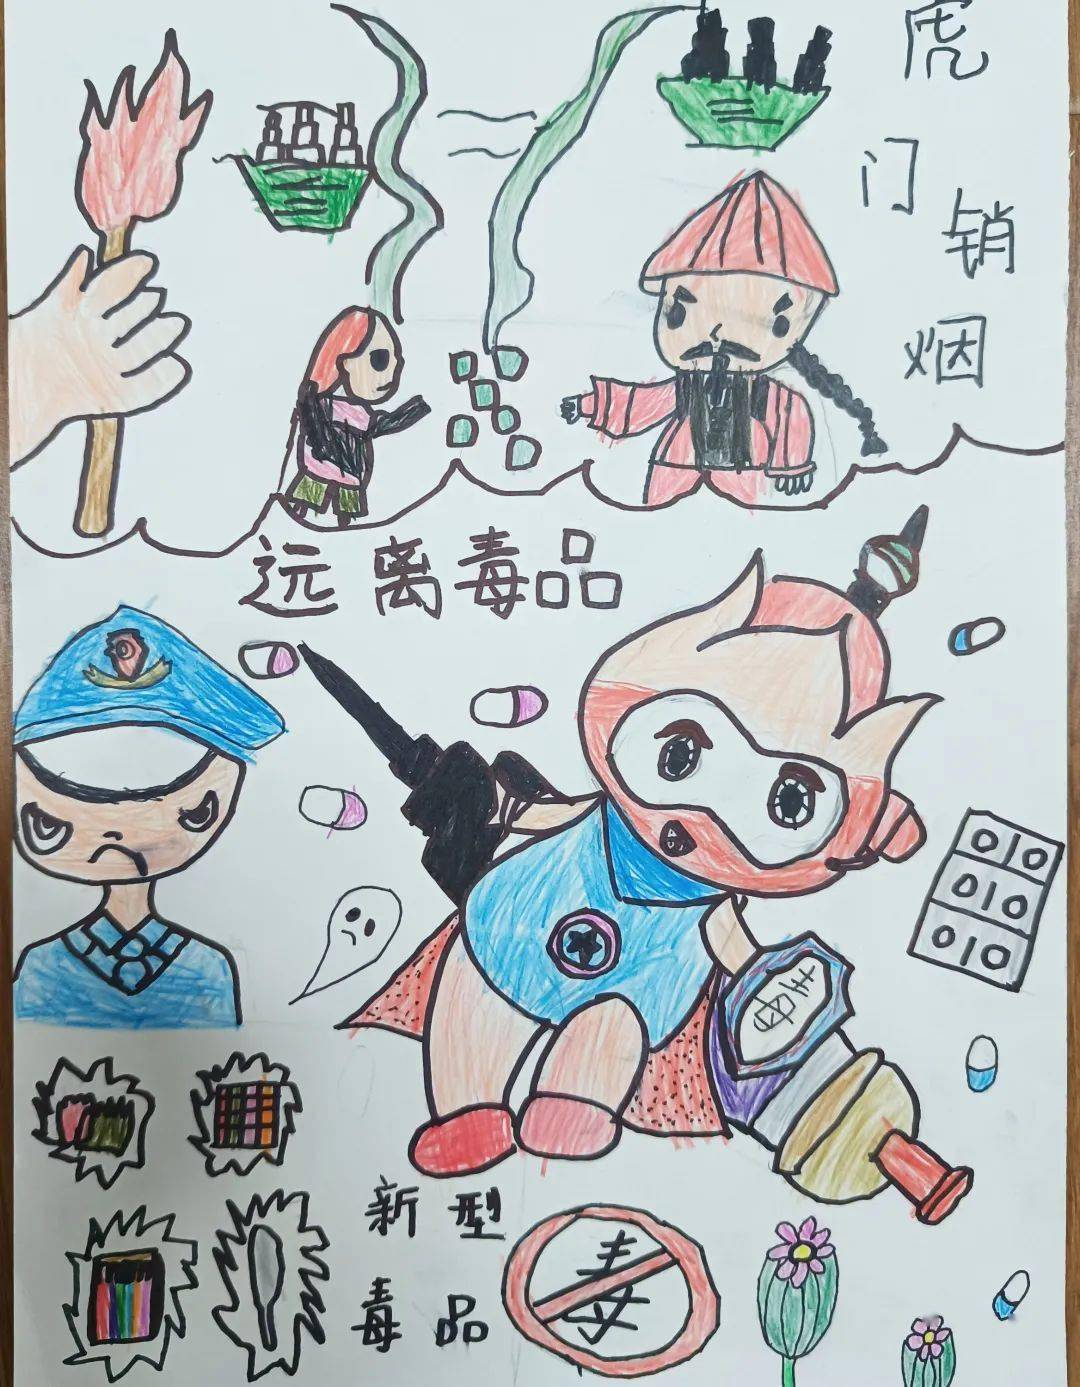 虎门销烟
远离毒品
毒
新型
毒品
毒